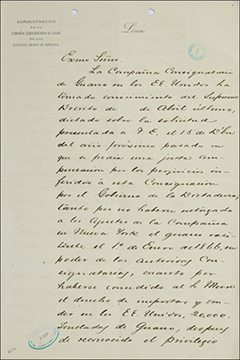 ADMINISTRACION
DE LA
COMPAÑIA CONSIGNATARIA DE GUANO
EN LOS
ESTADOS UNIDOS DE AMERICA
Lima
Exmo Señor.
La Compañia Consignataria
de Guano en los EE. Unidos ha
tomado conocimiento del Supremo
Decreto de de Abril último,
dictado sobre la solicitud
presentada a V.E. el 15 de
del año próximo pasado en
que se pedia una justa com-
pensacion por los perjuicios in-
feridos á esta Consignacion
por el Gobierno de la Dictadura,
tanto por no haberse entregado
á los Agentes de la Compañia
en Nueva York el guano exis-
tente el 1º de Enero de 1866, en
poder de los anteriores Con-
signatarios, cuanto por
haberse concedido al
el derecho de importar y ven-
der en los EE. Unidos 20,000
Toneladas de Guano, despues
de reconocido el privilegio